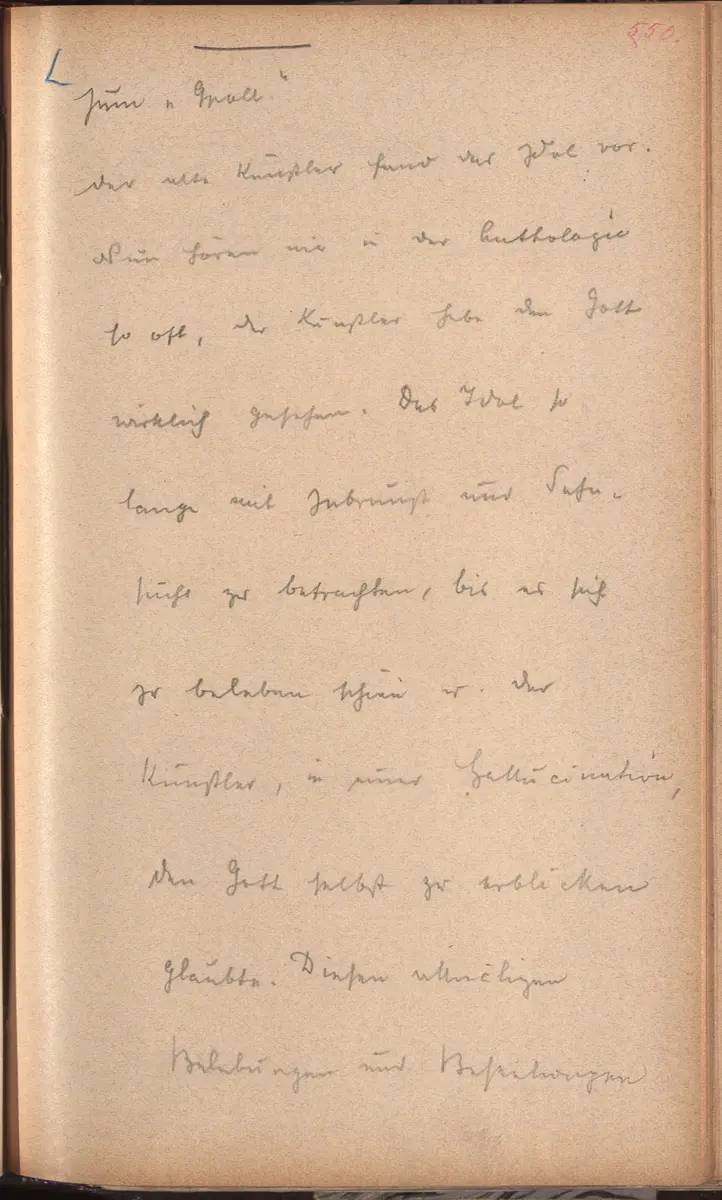 550.
Zum „Apoll"
Der alte Künstler fand das Idol vor.
Nun hören wir in der Anthologie
so oft, der Künstler habe den Gott
wirklich gesehen. Das Idol so
lange mit Inbrunst und Sehn-
sucht zu betrachten, bis es sich
zu beleben schien u. der
Künstler, in einer Hallucination,
den Gott selbst zu erblicken
glaubte. Diesen allmäligen
Belebungen und Beseelungen